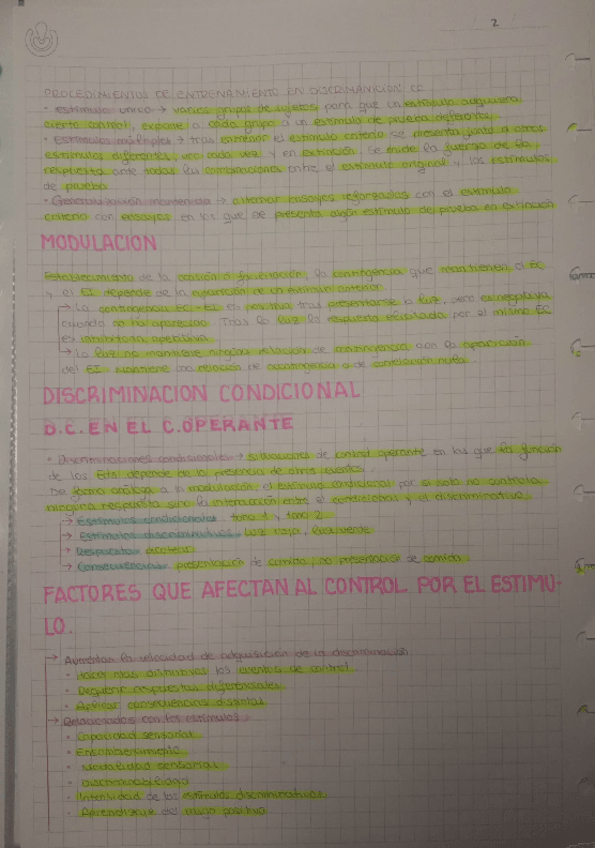 2
PROCEDIMIENTOS DE ENTRENAMIENTO EN DISCRIMINACION
• Estímulo único → varios grupos de sujetos para que un estímulo adquiera
cierto control, expone a cada grupo a un estímulo de prueba diferente.
• Estímulos múltiples → tras entrenar el estímulo criterio se presenta junto a otros
estímulos diferentes, uno cada vez y en extinción. Se mide la fuerza de la
respuesta ante todas las combinaciones entre el estímulo original y los estímulos
de prueba
• Generalización mantenida → alternar ensayos reforzados con el estímulo
criterio con ensayos en los que se presenta algún estímulo de prueba en extinción
MODULACION
Establecimiento de la ocasión o facilitación, la contingencia que mantienen el EC
y el EI depende de la aparición de un estímulo anterior.
→ La contingencia EC-EI es positiva tras presentarse la luz, pero es negativa
cuando no ha aparecido. Tras la luz la respuesta por el mismo EC
es
→ La luz no mantiene ninguna relación de contingencia con la aparición
del EI, mantiene una relación de contingencia o de nula.
DISCRIMINACION CONDICIONAL
D.C. EN EL C.OPERANTE
• Discriminaciones condicionales → situaciones de control operante en las que la función
de los Eds depende de la presencia de otros eventos.
De forma análoga a la modulación, el estímulo condicional por si solo no controla
ninguna respuesta sino la interacción entre el condicional y el discriminativo.
→ Estímulos condicionales: tono 1 y tono 2
→ Estímulos discriminativos: luz roja, luz verde
→ Respuesta: picotear
→ Consecuencia: presentación de comida, no presentación de comida
FACTORES QUE AFECTAN AL CONTROL POR EL ESTIMU-
LO.
→ Aumentan la velocidad de adquisición de la discriminación
• Hacer mas distintivos los eventos de control
• Requerir respuestas diferenciales
• Aplicar consecuencias distintas
→ Relacionados con los estímulos
• Capacidad sensorial
• Ensombrecimiento
• Modalidad sensorial
• Discriminabilidad
• Intensidad de los estímulos discriminativos
• Aprendizaje del rasgo positivo